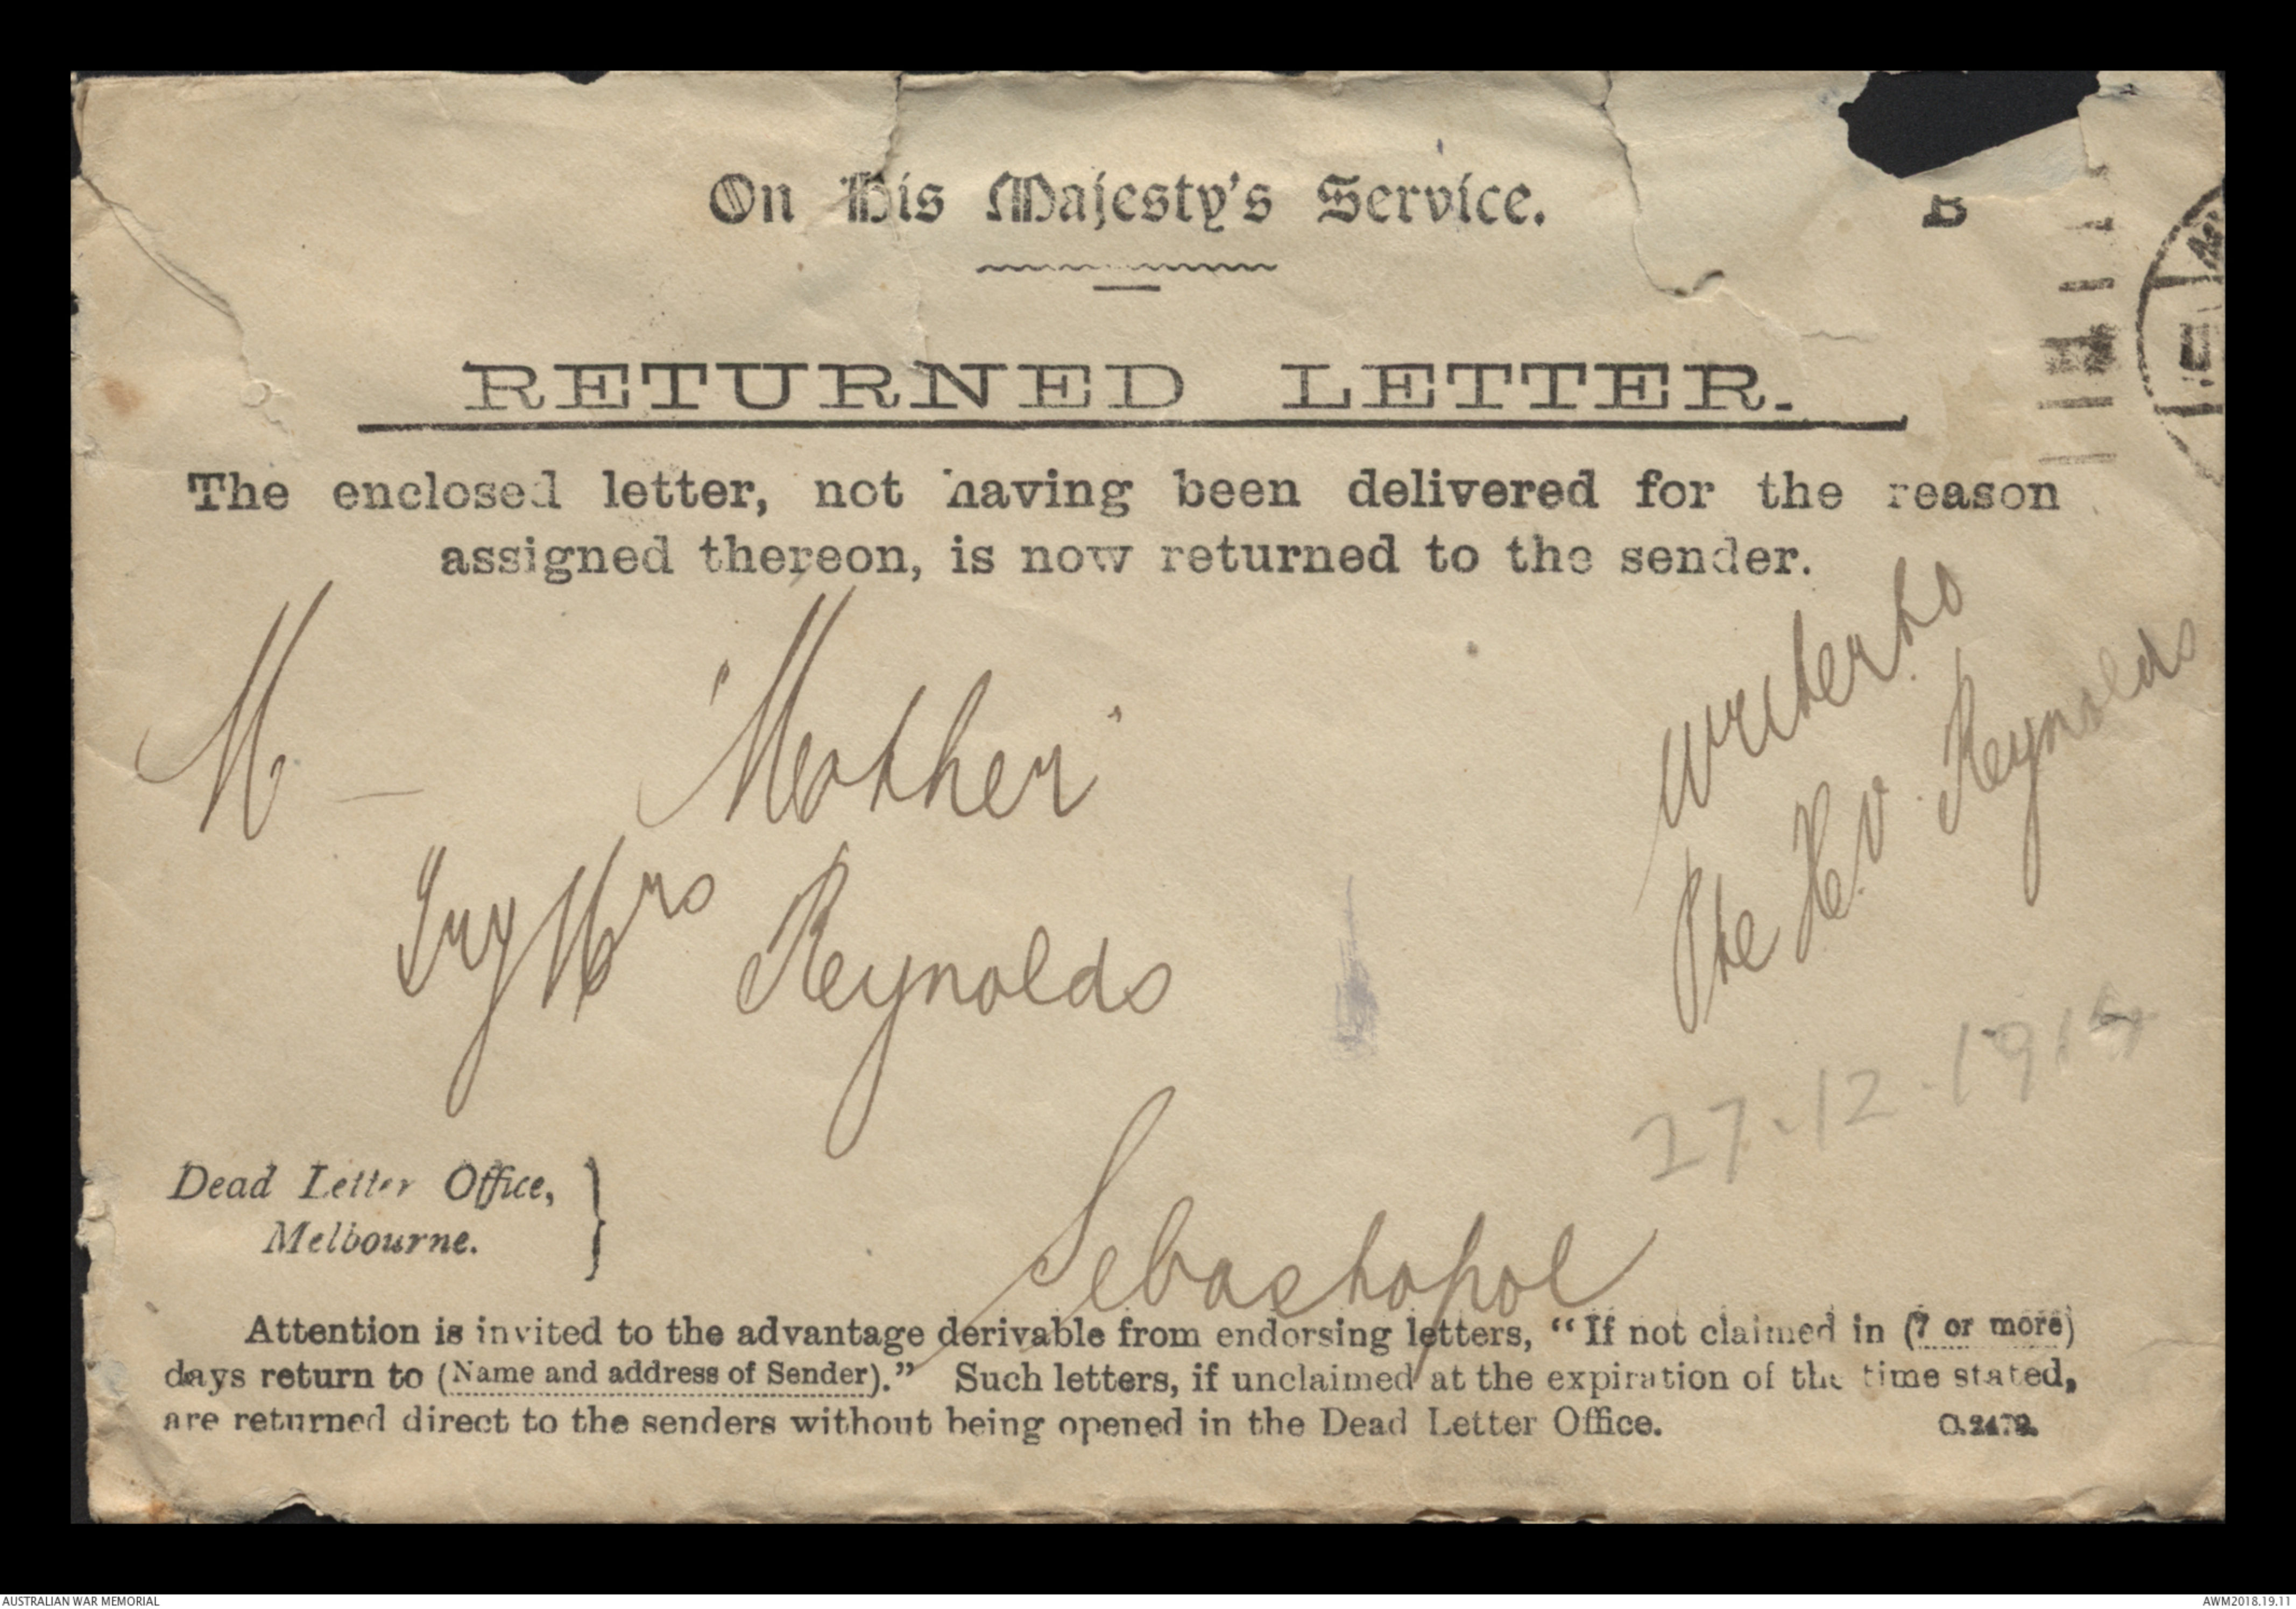 On His Majesty's Service.
B
RETURNED LETTER.
The enclosed letter, not having been delivered for the reason
assigned thereon, is now returned to the sender.
M — "Mother"
Try Mrs Reynolds
Sebastopol
Writer to
Pte H. V. Reynolds
27.12.1915
Dead Letter Office,
Melbourne.
Attention is invited to the advantage derivable from endorsing letters, “If not claimed in (7 or more)
days return to (Name and address of Sender).” Such letters, if unclaimed at the expiration of the time stated,
are returned direct to the senders without being opened in the Dead Letter Office.
AUSTRALIAN WAR MEMORIAL
AWM2018.19.11